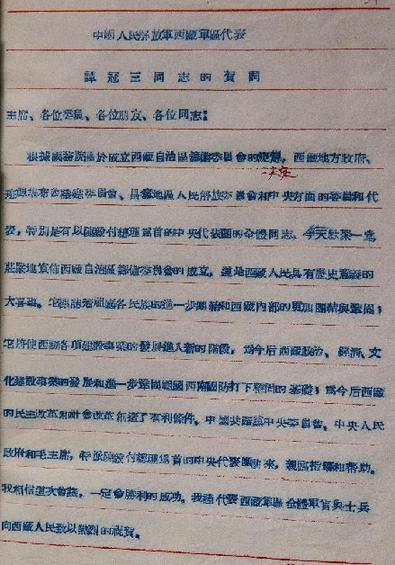 中國人民解放軍西藏軍區代表
譚冠三同志的賀詞
主席、各位委員、各位朋友、各位同志：
根據國務院關於成立西藏自治區籌備委員會的決定，西藏地方政府、
班禪堪布會議廳委員會、昌都地區人民解放委員會和中央方面的委員和代
表，特別是有以陳毅付總理為首的中央代表團的全體同志。今天歡聚一堂，
莊嚴地宣佈西藏自治區籌備委員會的成立，這是西藏人民具有歷史意義的
大喜事。它標誌着祖國各民族的進一步團結和西藏內部的更加團結與鞏固；
它將使西藏各項建設事業的發展進入新的階段，為今后西藏政治、經濟、文
化建設事業的發展和進一步鞏固祖國西南國防打下堅固的基礎；為今后西藏
的民主改革和社會改革創造了有利條件。中國共產黨中央委員會、中央人民
政府和毛主席，特派陳毅付總理為首的中央代表團前來，親臨指導和幫助。
我相信這次會議，一定會勝利的成功。我謹代表西藏軍區全體軍官與士兵
向西藏人民致以熱烈的祝賀。